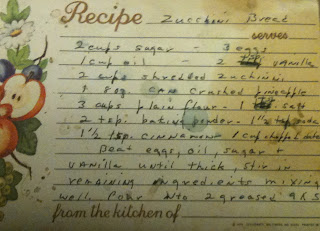 Recipe Zucchini Bread
serves
2 cups sugar - 3 eggs
1 cup oil - 2 vanilla
2 cups shredded zucchinis
1 8 oz. can crushed pineapple
3 cups plain flour - 1 tsp. salt
2 tsp. baking powder - 1 1/2 tsp soda
1 1/2 tsp. cinnamon 1 cup chopped dates
Beat eggs, oil, sugar +
vanilla until thick, stir in
remaining ingredients mixing
well. Pour into 2 greased 9x5
from the kitchen of